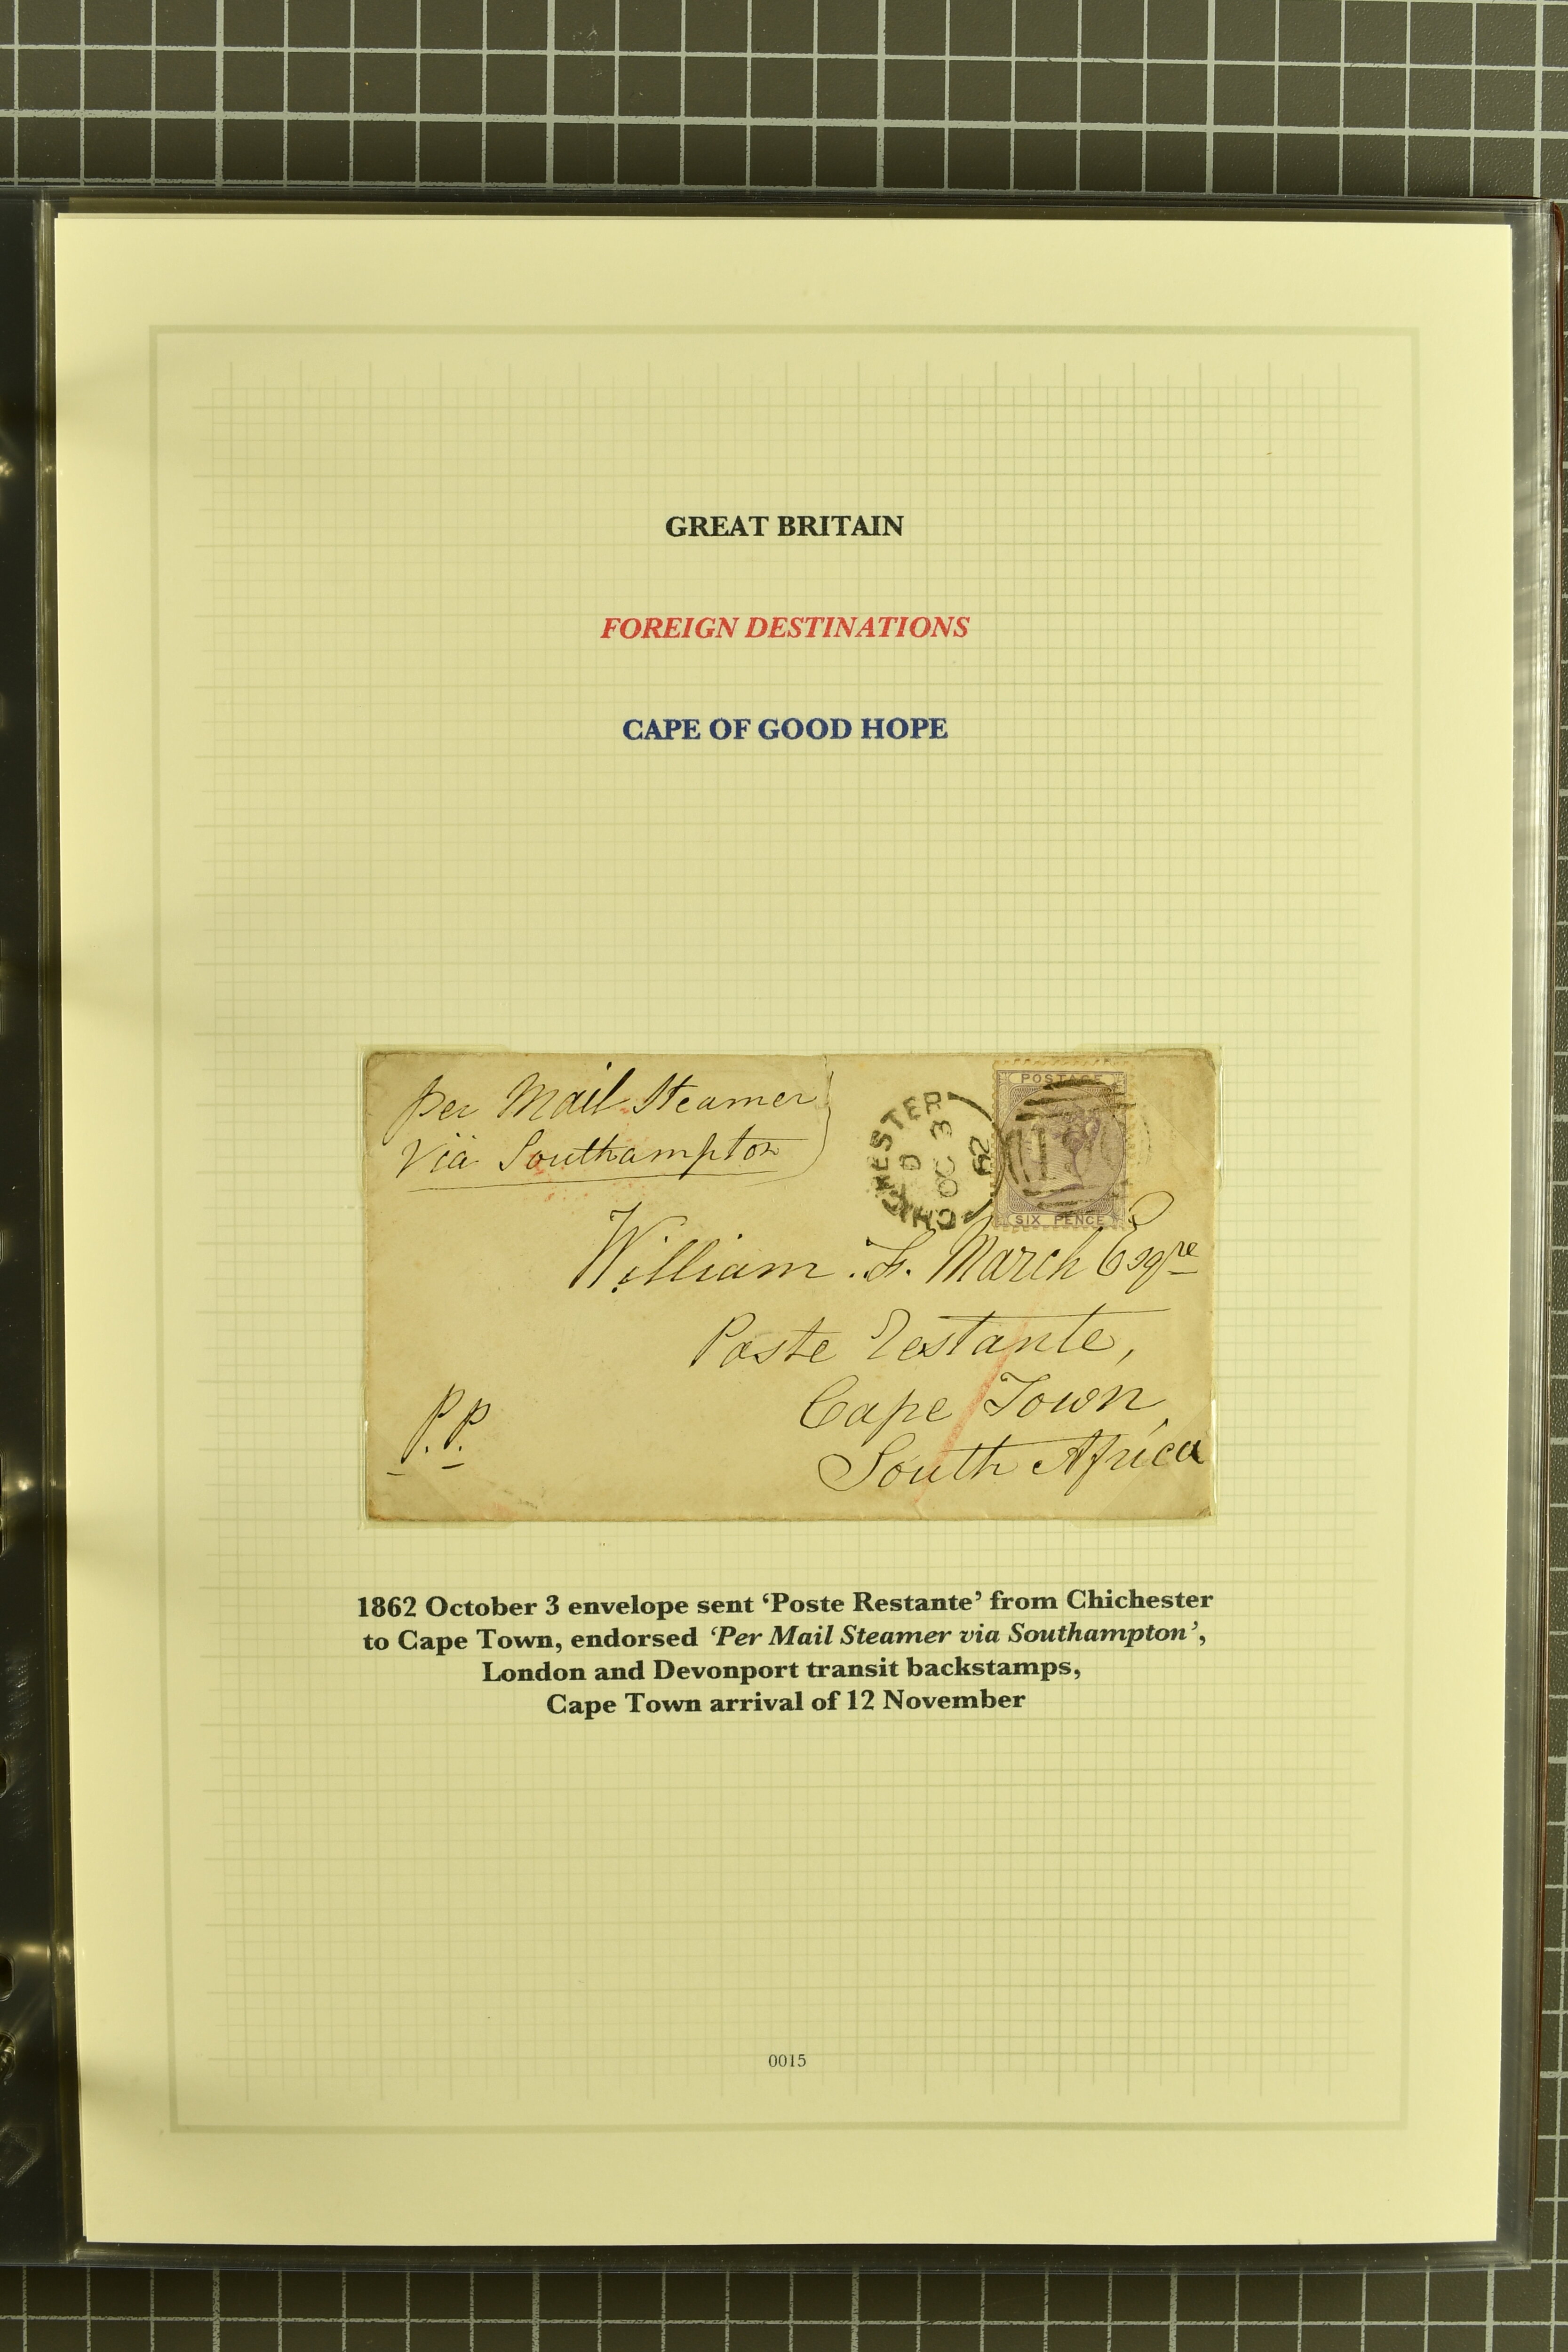 GREAT BRITAIN
FOREIGN DESTINATIONS
CAPE OF GOOD HOPE
per Mail Steamer
Via Southampton
CHICHESTER
D
OC 3
62
POSTAGE
SIX PENCE
William. F. March Esqre
Poste Restante,
Cape Town,
South Africa
P.P.
1862 October 3 envelope sent ‘Poste Restante’ from Chichester
to Cape Town, endorsed ‘Per Mail Steamer via Southampton’,
London and Devonport transit backstamps,
Cape Town arrival of 12 November
0015